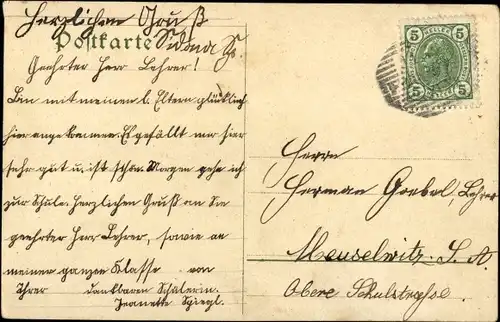 Herzlichen Gruß
Postkarte Sidona
Geehrter Herr Lehrer!
Bin mit meinen l. Eltern glücklich
hier angekommen. Es gefällt mir hier
sehr gut u. ist schön. Morgen gehe ich
zur Schule. Herzlichen Gruß an Sie
geehrter Herr Lehrer, sowie an
meiner ganzen Klasse von
Ihrer dankbaren Schülerin
Jeanette Spiegl.
5 HELLER 5
5 5
Herrn
Herman Goebel, Lehrer
Meuselwitz S. A.
Obere Schulstrasse.